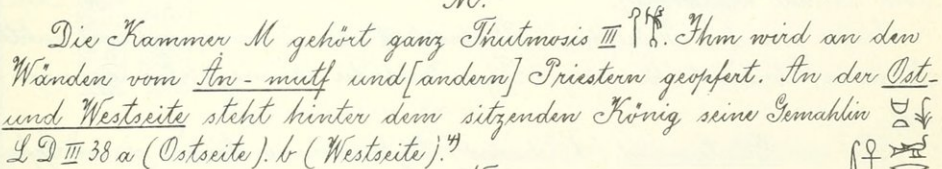 M.
Die Kammer M gehört ganz Thutmosis III. Ihm wird an den
Wänden vom An-mutf und [andern] Priestern geopfert. An der Ost-
und Westseite steht hinter dem sitzenden König seine Gemahlin
L D III 38 a (Ostseite). b (Westseite).